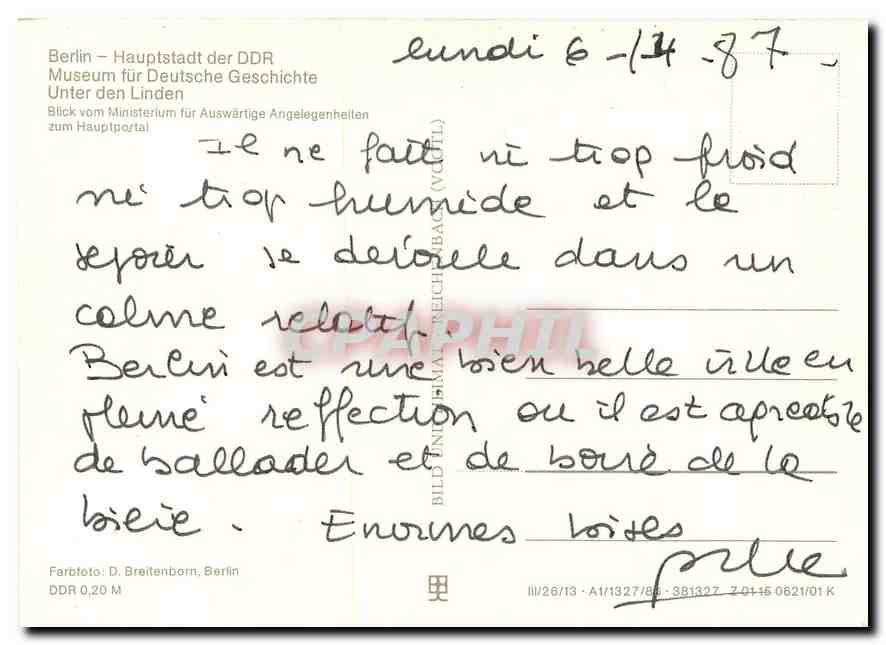 Berlin – Hauptstadt der DDR
Museum für Deutsche Geschichte
Unter den Linden
Blick vom Ministerium für Auswärtige Angelegenheiten
zum Hauptportal
lundi 6 - 4 - 87
Il ne fait ni trop froid
ni trop humide et le
sejour se déroule dans un
calme relatif.
Berlin est une bien belle ville en
pleine reffection ou il est agreable
de ballader et de boire de la
biere. Enormes bises
BILD UND HEIMAT REICHENBACH (VOGTL)
CPAPHIL
Farbfoto: D. Breitenborn, Berlin
DDR 0,20 M
III/26/13 · A1/1327/86 · 381327 Z 01 15 0621/01 K